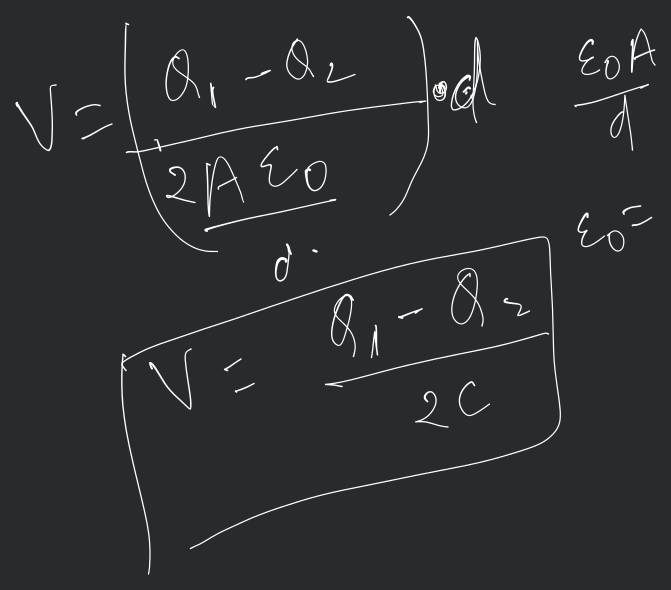 V = (Q₁ - Q₂ / 2Aε₀) · d
d ·
ε₀A / d
ε₀ =
V = Q₁ - Q₂ / 2C